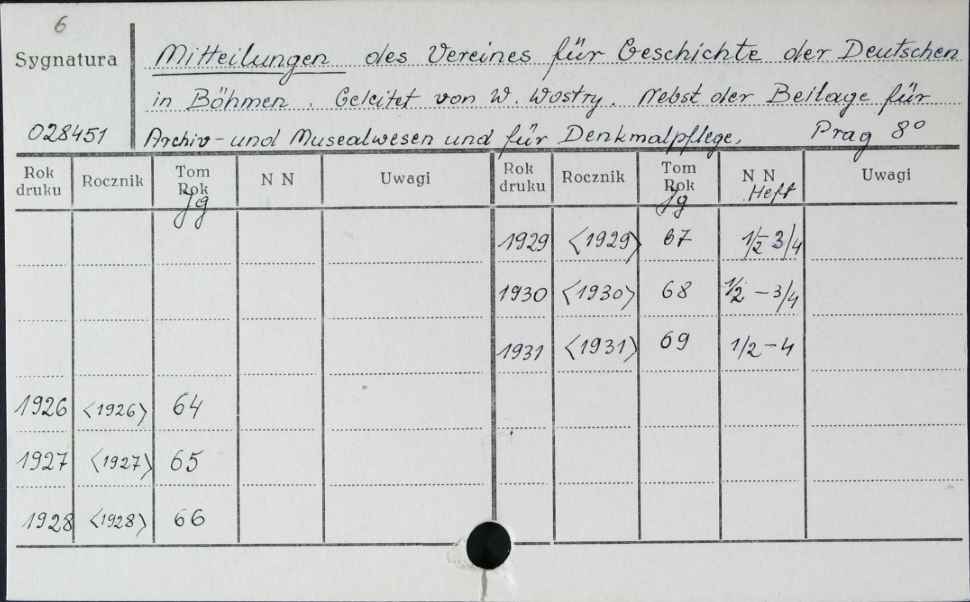 6
Sygnatura
028451
Mitteilungen des Vereines für Geschichte der Deutschen
in Böhmen. Geleitet von W. Wostry. Nebst der Beilage für
Archiv- und Musealwesen und für Denkmalpflege. Prag 8°
Rok druku Rocznik Tom Rok Jg N N Uwagi Rok druku Rocznik Tom Rok Jg N N Heft Uwagi
1929 <1929> 67 1/2 3/4
1930 <1930> 68 1/2 - 3/4
1931 <1931> 69 1/2 - 4
1926 <1926> 64
1927 <1927> 65
1928 <1928> 66